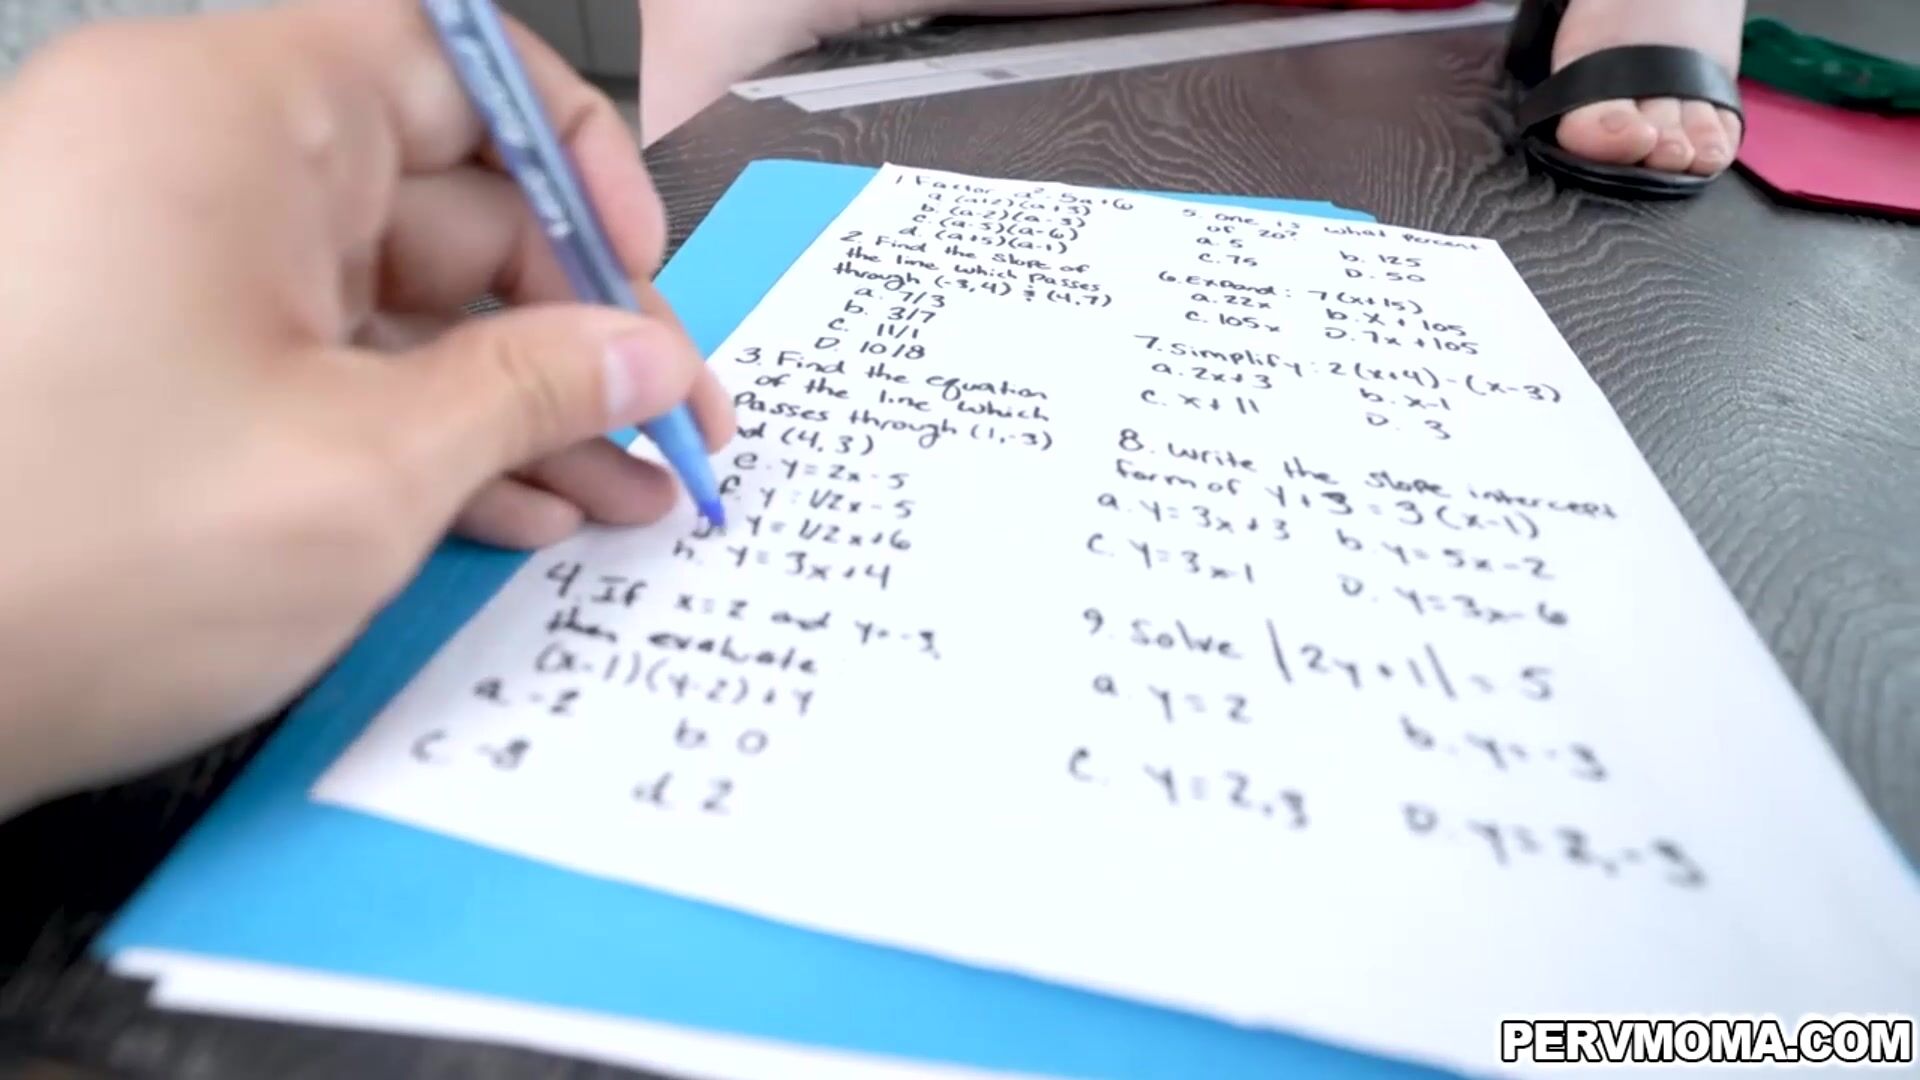 1 Factor a²-5a+6
a (a+2)(a+3)
b. (a-2)(a-3)
c. (a-5)(a-6)
d. (a+5)(a-1)
2. Find the Slope of
the line which Passes
through (-3,4) & (4,7)
a. 7/3
b. 3/7
c. 11/1
D. 10/8
3. Find the equation
of the line which
Passes through (1,-3)
(4,3)
e. y=2x-5
f. y=1/2x-5
y=1/2x+6
h. y=3x+4
4. If x=2 and y=-3,
then evaluate
(x-1)(y-2)+y
a -2
b. 0
c. -8
d. 2
5. one is what Percent
of 20?
a. 5
b. 125
c. 75
D. 50
6. Expand: 7(x+15)
a. 22x
b. x+105
c. 105x
D. 7x+105
7. Simplify: 2(x+4)-(x-3)
a. 2x+3
b. x-1
c. x+11
D. 3
8. Write the slope intercept
form of y+3=3(x-1)
a. y=3x+3
b. y=5x-2
c. y=3x-1
D. y=3x-6
9. Solve |2y+1|=5
a. y=2
b. y=-3
c. y=2,3
D. y=2,-3
PERVMOMA.COM